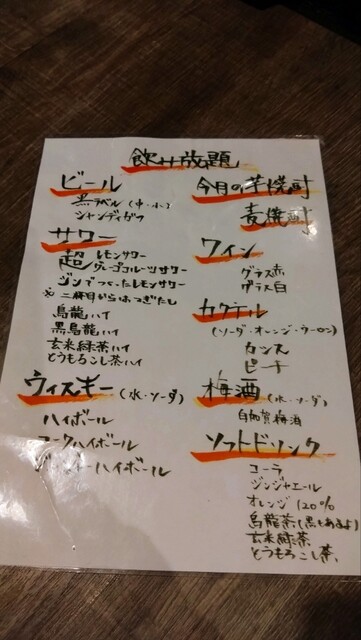 飲み放題
ビール
黒ラベル (中・小)
シャンディガフ
サワー
超レモンサワー
グレープフルーツサワー
ジンでつくったレモンサワー
※二杯目からはつぎたし
烏龍ハイ
黒烏龍ハイ
玄米緑茶ハイ
とうもろこし茶ハイ
ウィスキー (水・ソーダ)
ハイボール
コークハイボール
ハイボール
今月の芋焼酎
麦焼酎
ワイン
グラス赤
グラス白
カクテル
(ソーダ・オレンジ・ウーロン)
カシス
ピーチ
梅酒 (水・ソーダ)
白加賀梅酒
ソフトドリンク
コーラ
ジンジャエール
オレンジ 120%
烏龍茶 (黒もあるよ)
玄米緑茶
とうもろこし茶